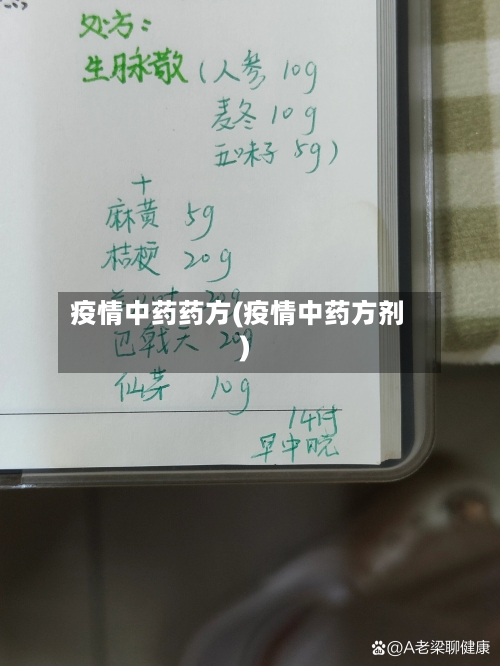 处方:
生脉散(人参 10g
麦冬 10g
五味子 5g)
+
麻黄 5g
桔梗 20g
20g
疫情中药药方(疫情中药方剂
)
巴戟天 20g
仙茅 10g
14付
早中晚
@A老梁聊健康